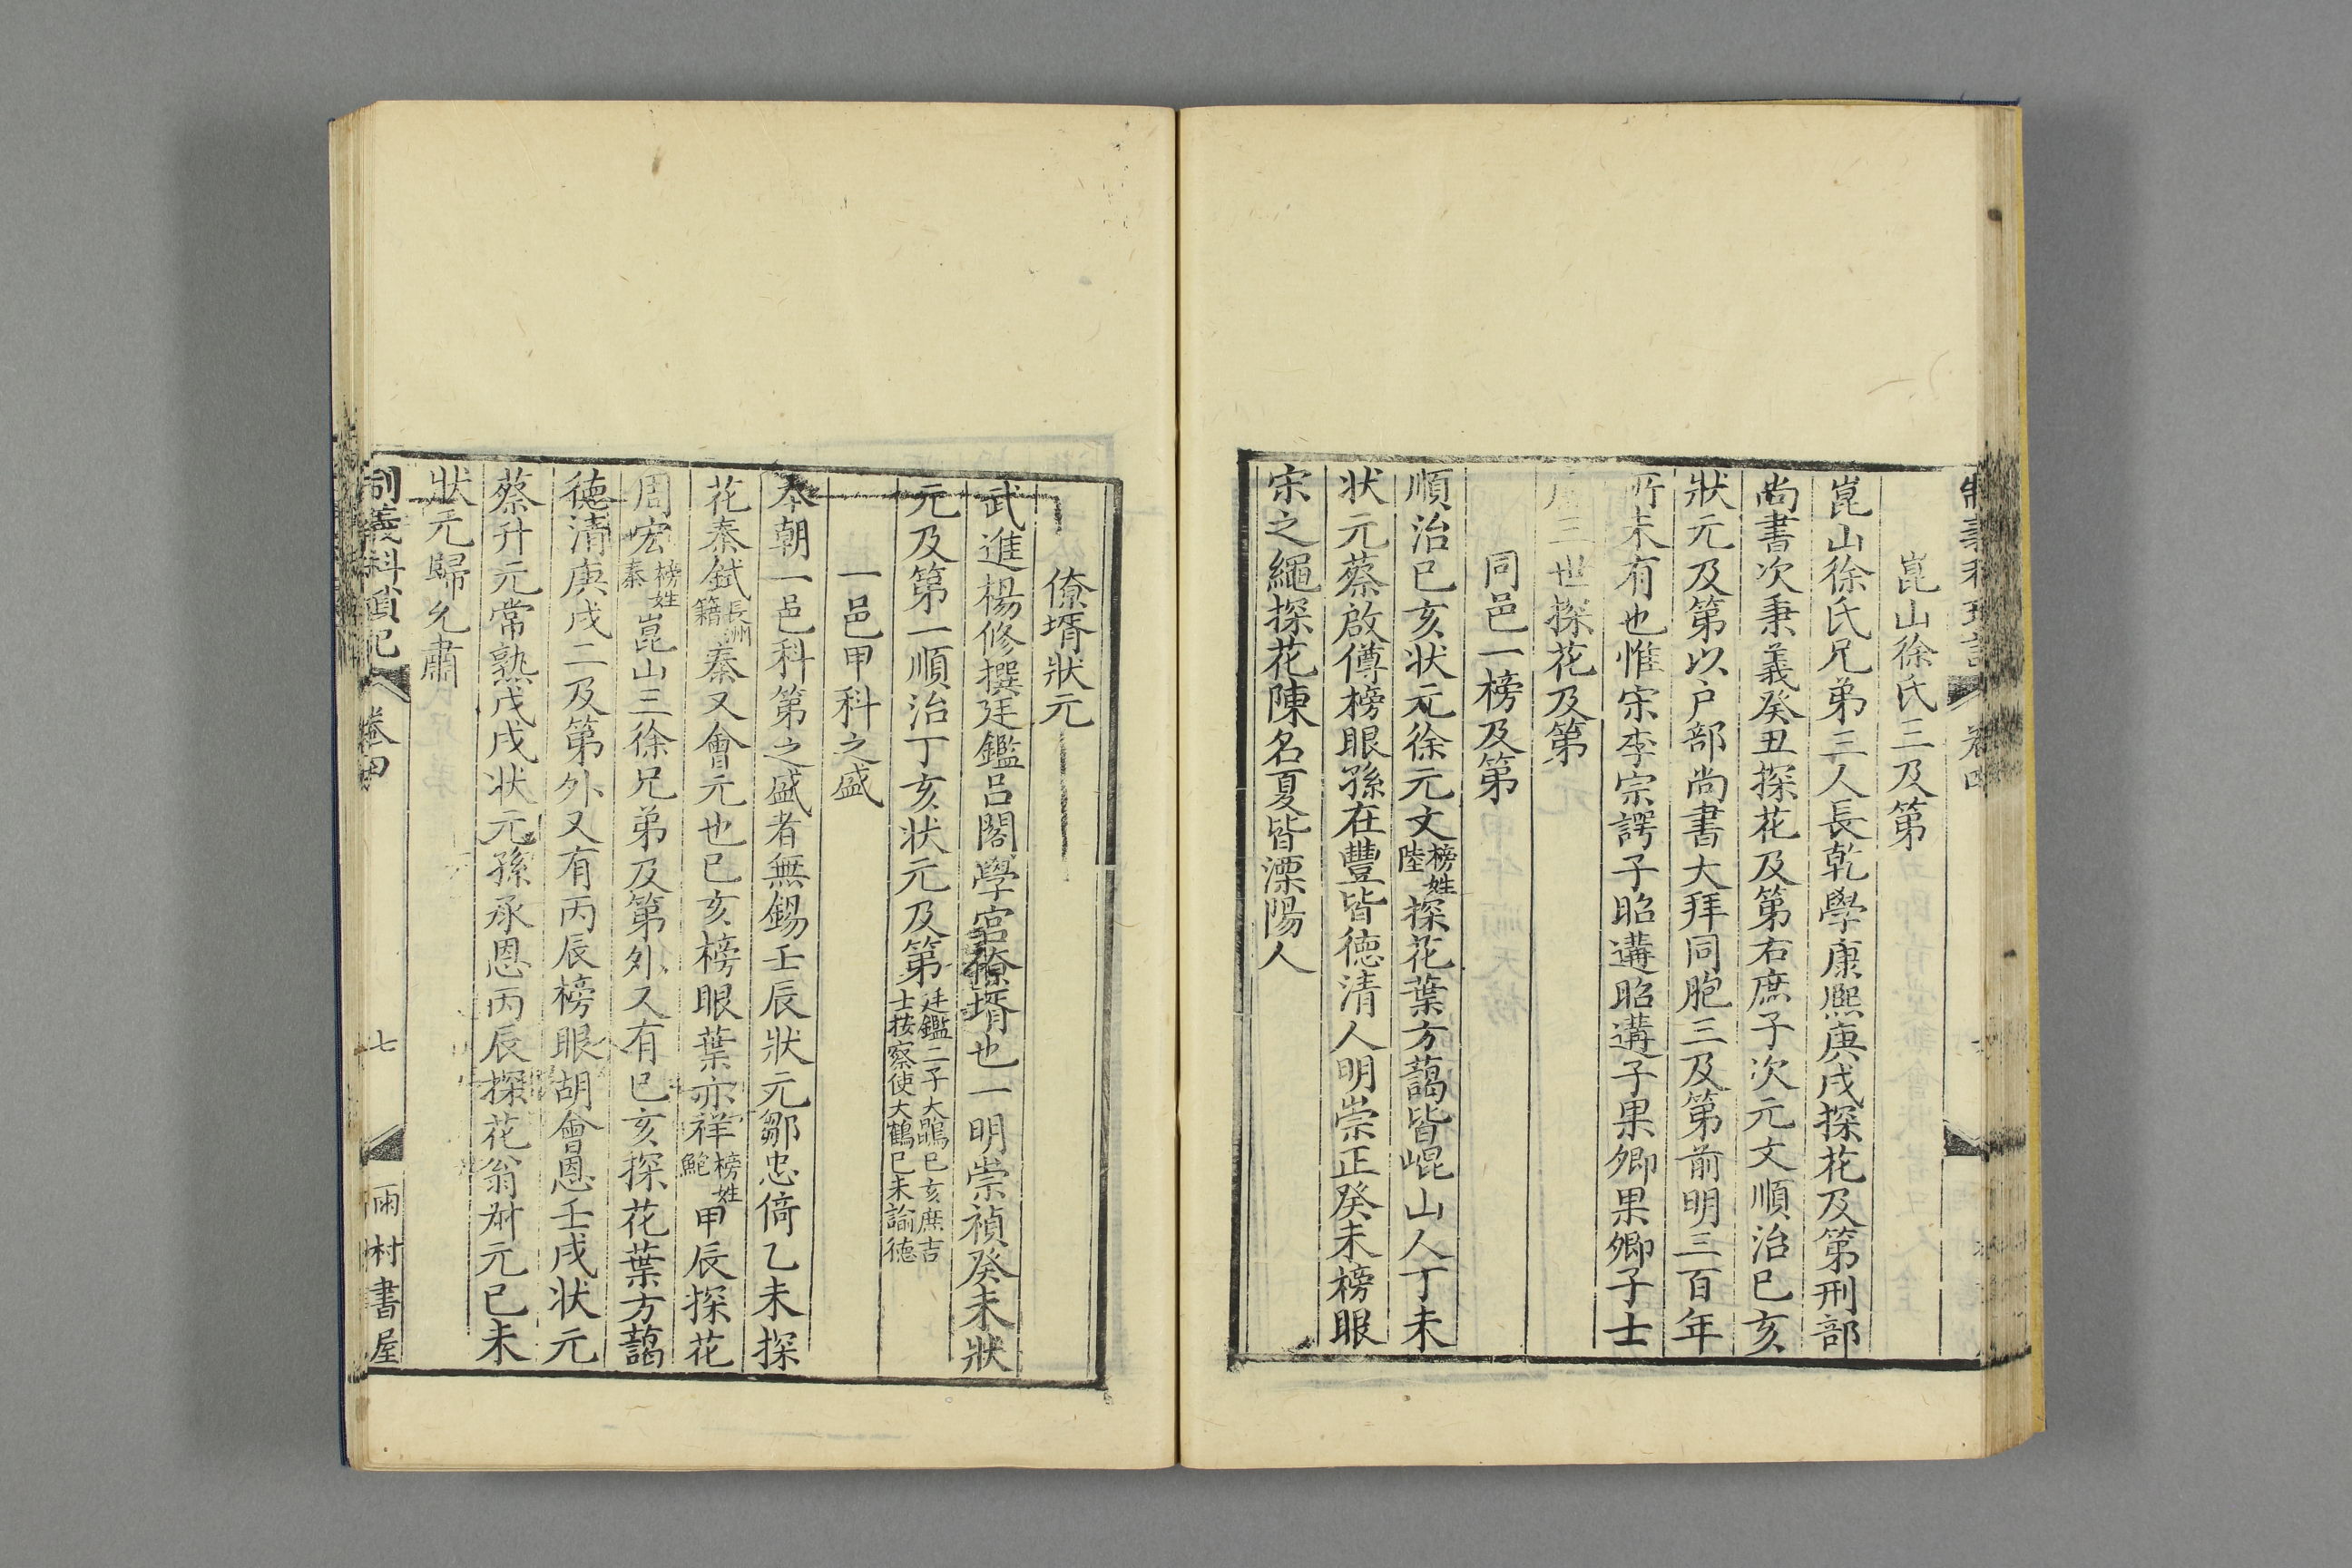 崑山徐氏三及第
崑山徐氏兄弟三人長乾學康熙庚戌探花及第刑部
尚書次秉義癸丑探花及第右庶子次元文順治已亥
狀元及第以户部尚書大拜同胞三及第前明三百年
所未有也惟宋李宗諤子昭遘昭遘子果卿果卿子士
三世探花及第
同邑一榜及第
順治已亥状元徐元文榜姓陸探花葉方藹皆崐山人丁未
状元蔡啟僔榜眼孫在豐皆德清人明崇正癸未榜眼
宋之繩探花陳名夏皆溧陽人
僚壻狀元
武進楊修撰廷鑑吕閣學宮僚壻也一明崇禎癸未狀
元及第一順治丁亥状元及第廷鑑二子大鵾已亥庶吉士按察使大鶴已未諭德
一邑甲科之盛
本朝一邑科第之盛者無錫壬辰狀元鄒忠倚乙未探
花秦鉽長洲籍秦又會元也已亥榜眼葉亦祥榜姓鮑甲辰探花
周宏榜姓秦崑山三徐兄弟及第外又有已亥探花葉方藹
德清庚戌二及第外又有丙辰榜眼胡會恩壬戌状元
蔡升元常熟戊戌状元孫承恩丙辰探花翁叔元已未
狀元歸允肅
制義科瑣記 卷四 七 雨村書屋